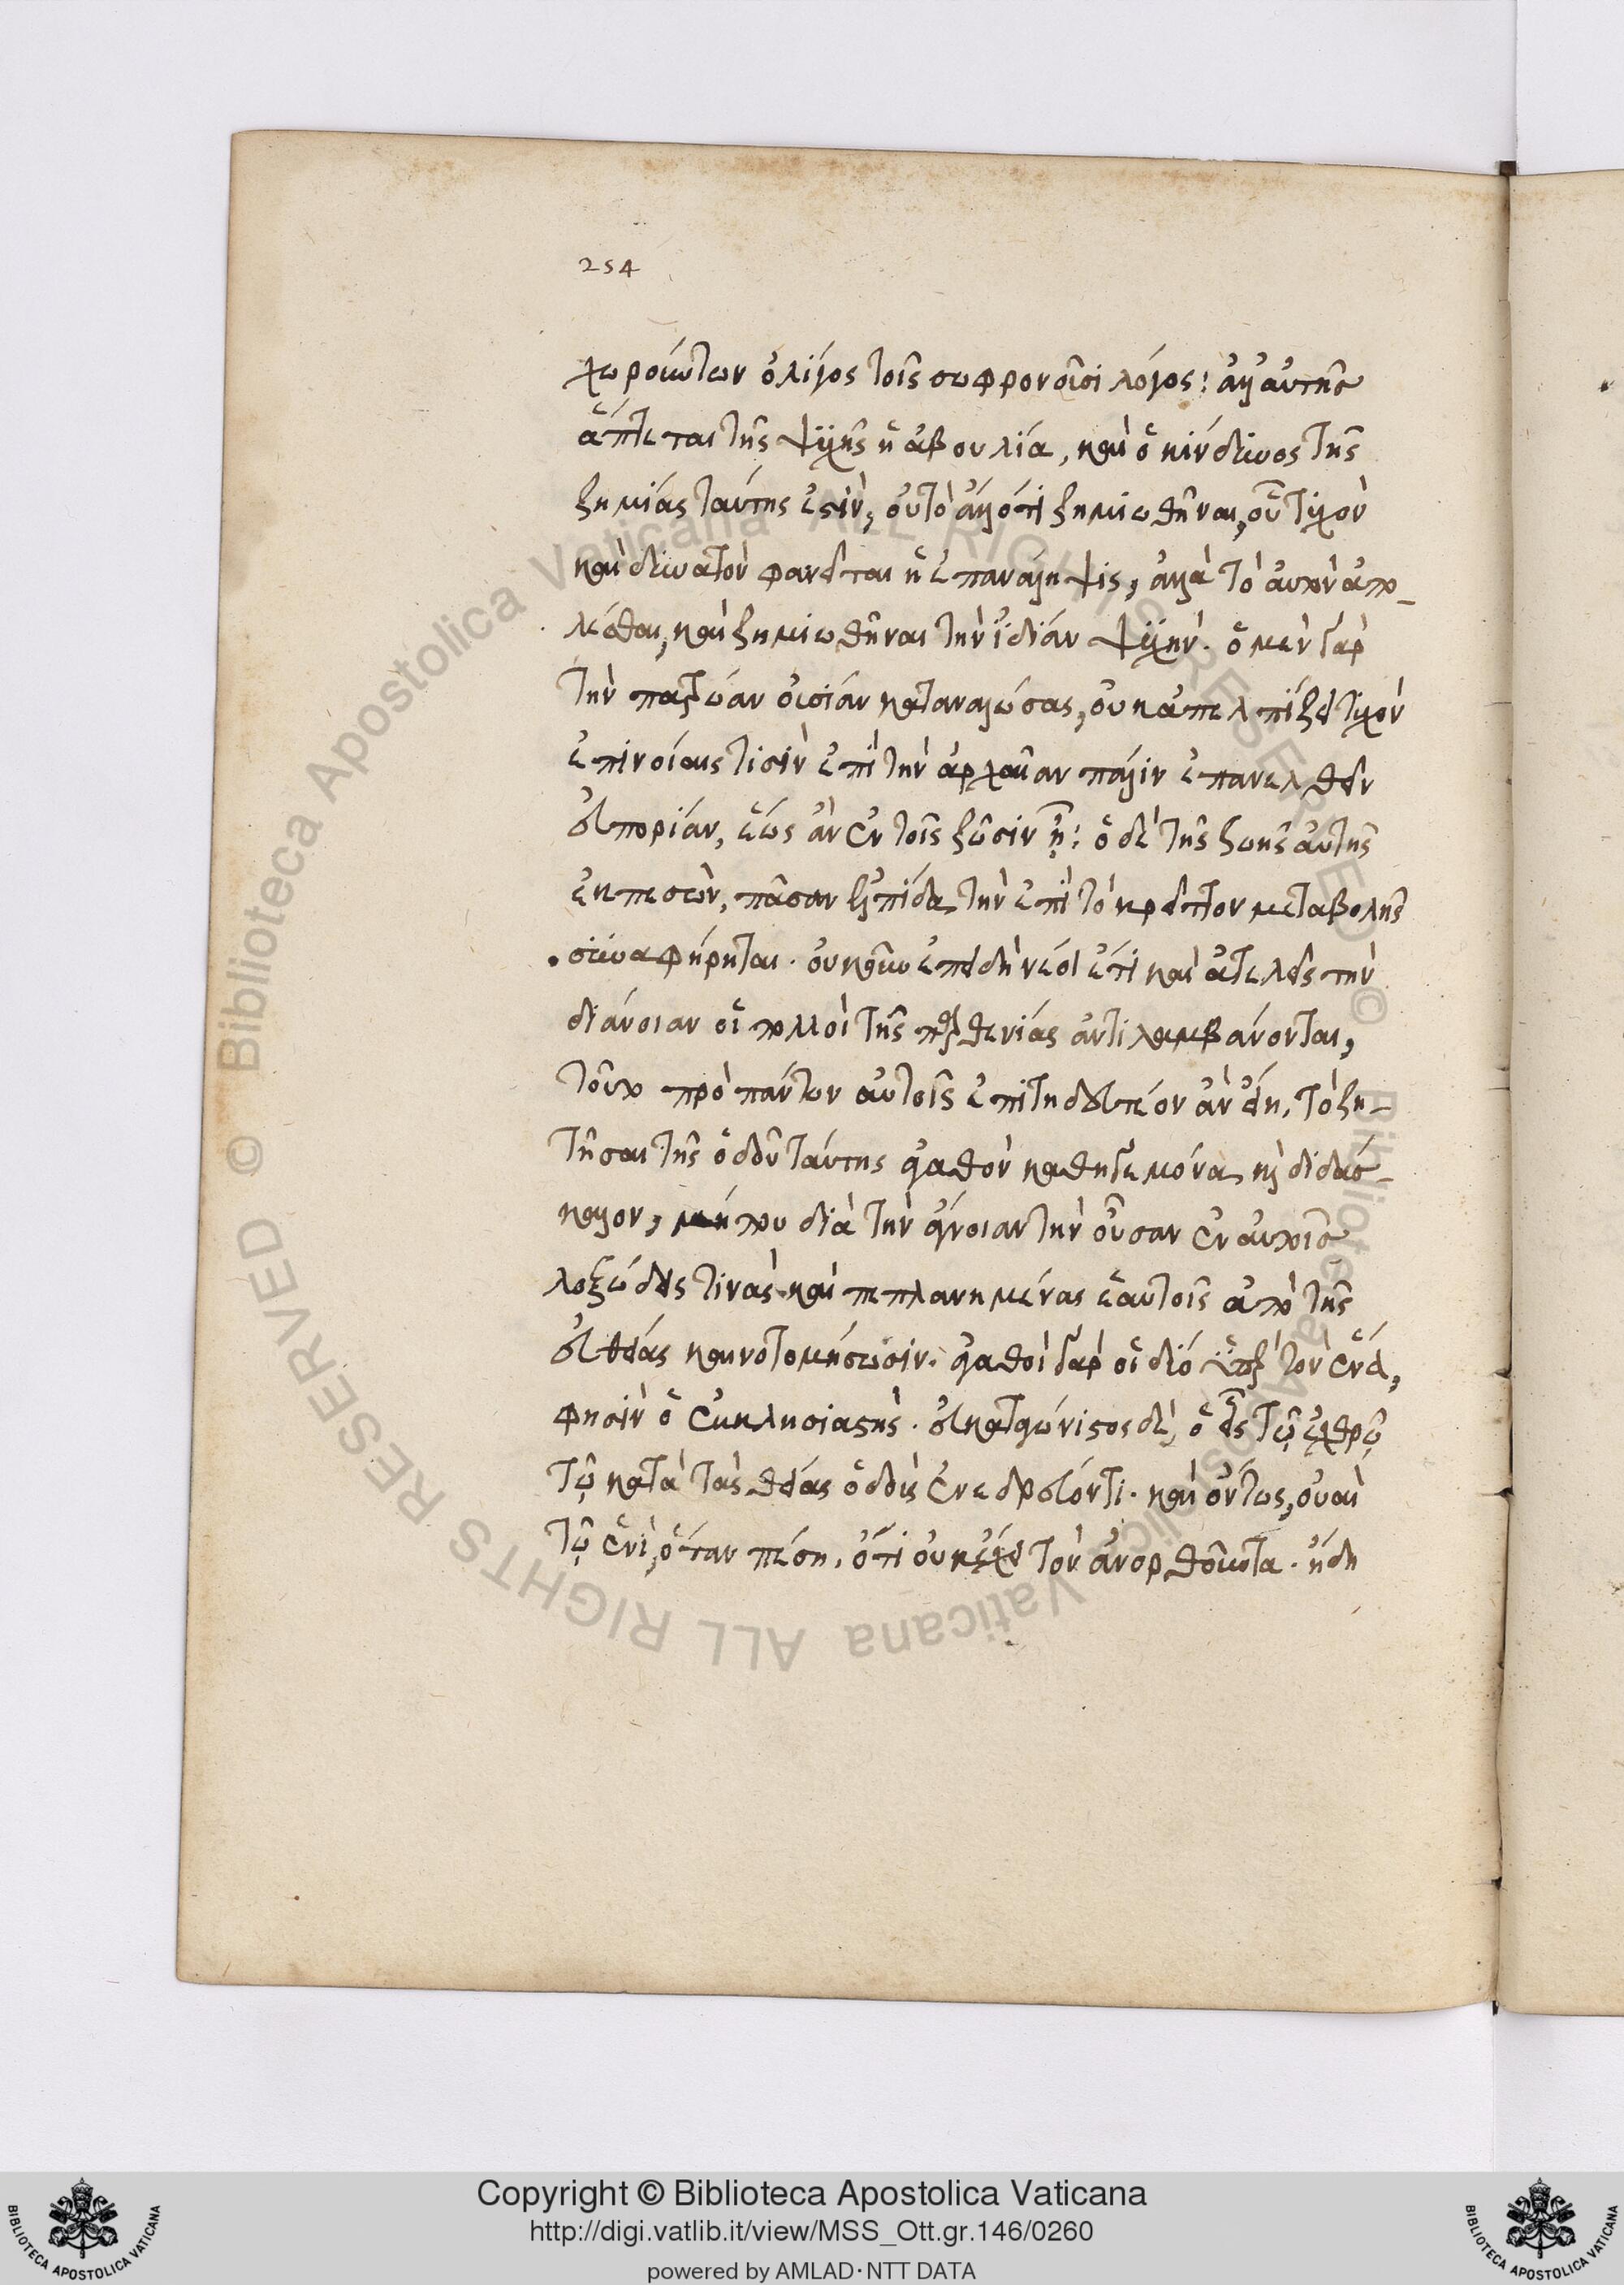 254
χωρούντων ὀλίγος τοῖς σωφρονοῦσι λόγος· ἀλλ' αὐτῆς
ἅπτεται τῆς ψυχῆς ἡ ἀβουλία, καὶ ὁ κίνδυνος τῆς
ζημίας ταύτης ἐστὶν, οὐ τὸ ἄλλό τι ζημιωθῆναι, οὗ τυχὸν
καὶ δυνατὸν φανεῖται ἡ ἐπανάληψις, ἀλλὰ τὸ αὐτὸν ἀπο-
λέσθαι, καὶ ζημιωθῆναι τὴν ἰδίαν ψυχήν. ὁ μὲν γὰρ
τὴν πατρῴαν οὐσίαν καταναλώσας, οὐκ ἀπελπίζει τυχὸν
ἐπινοίαις τισὶν ἐπὶ τὴν ἀρχαῖαν πάλιν ἐπανελθεῖν
εὐπορίαν, ἕως ἂν ἐν τοῖς ζῶσιν ᾖ· ὁ δὲ τῆς ζωῆς αὐτῆς
ἐκπεσὼν, πᾶσαν ἐλπίδα τὴν ἐπὶ τὸ κρεῖττον μεταβολῆς
συναφῄρηται. οὐκοῦν ἐπειδὴ νέοι ἔτι καὶ ἀτελεῖς τὴν
διάνοιαν οἱ πολλοὶ τῆς παρθενίας ἀντιλαμβάνονται,
τοῦτο πρὸ πάντων αὐτοῖς ἐπιτηδευτέον ἂν εἴη, τὸ ζη-
τῆσαι τῆς ὁδοῦ ταύτης ἀγαθὸν καθηγεμόνα κ διδάσ-
καλον, μήπου διὰ τὴν ἄγνοιαν τὴν οὖσαν ἐν αὐτοῖς
λοξώδεις τινὰς καὶ πεπλανημένας ἑαυτοῖς ἀπὸ τῆς
εὐθείας καινοτομήσωσιν. ἀγαθοὶ γὰρ οἱ δύο ὑπὲρ τὸν ἕνα,
φησὶν ὁ ἐκκλησιαστής. εὐκαταγώνιστος δὲ, ὁ εἷς τῷ ἐχθρῷ
τῷ κατὰ τὰς θείας ὁδοὺς ἐνεδρεύοντι. καὶ ὄντως, οὐαὶ
τῷ ἑνὶ, ὅταν πέσῃ, ὅτι οὐκ ἔχει τὸν ἀνορθοῦντα. ἤδη